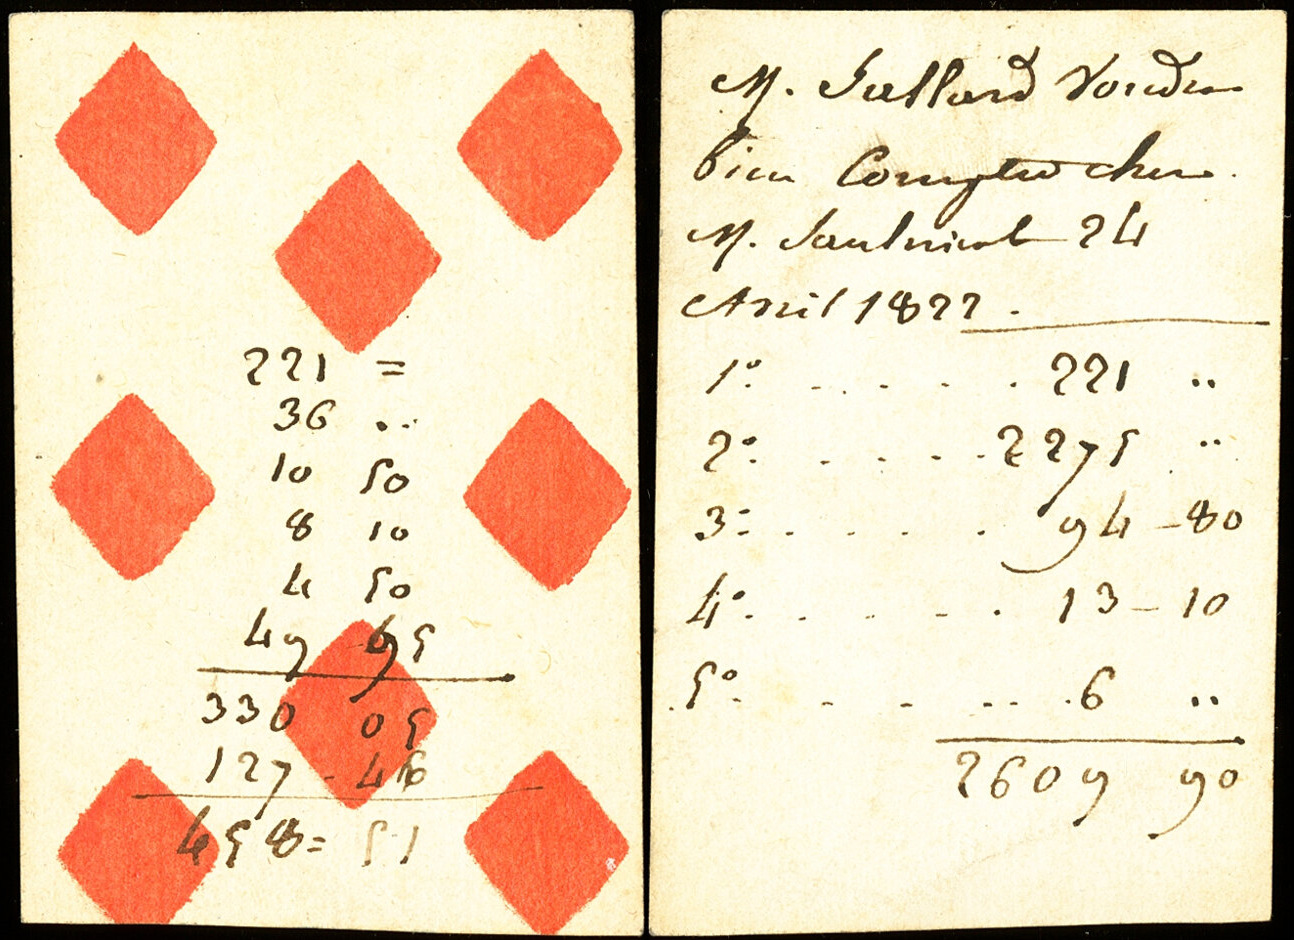 221 =
36 ..
10 50
8 10
4 50
49 95
330 05
127 - 46
458 = 51
M. Gallard Voudra
bien Compter chez
M. 24
Avril 1822.
1°. . . . . . 221 ..
2°. . . . . . 2275 ..
3°. . . . . . 94 - 80
4°. . . . . . 13 - 10
5°. . . . . . 6 ..
2609 90